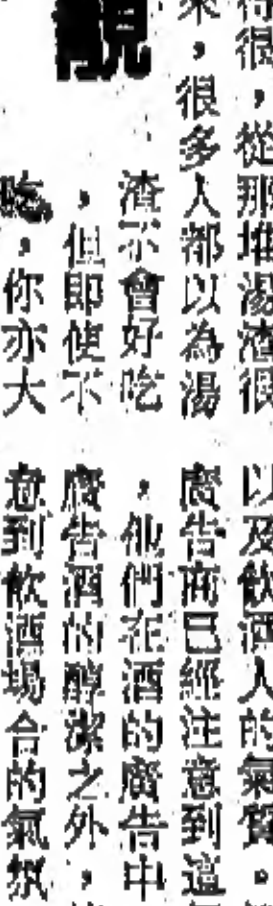 觀
得很，從那堆湯渣很
來，很多人都以為湯
渣不會好吃
，但即使不
吃，你亦大
以及飲酒人的氣質。
廣告商已經注意到這
，他們在酒的廣告中
廣告酒的醇潔之外，
意到飲酒場合的氣氛